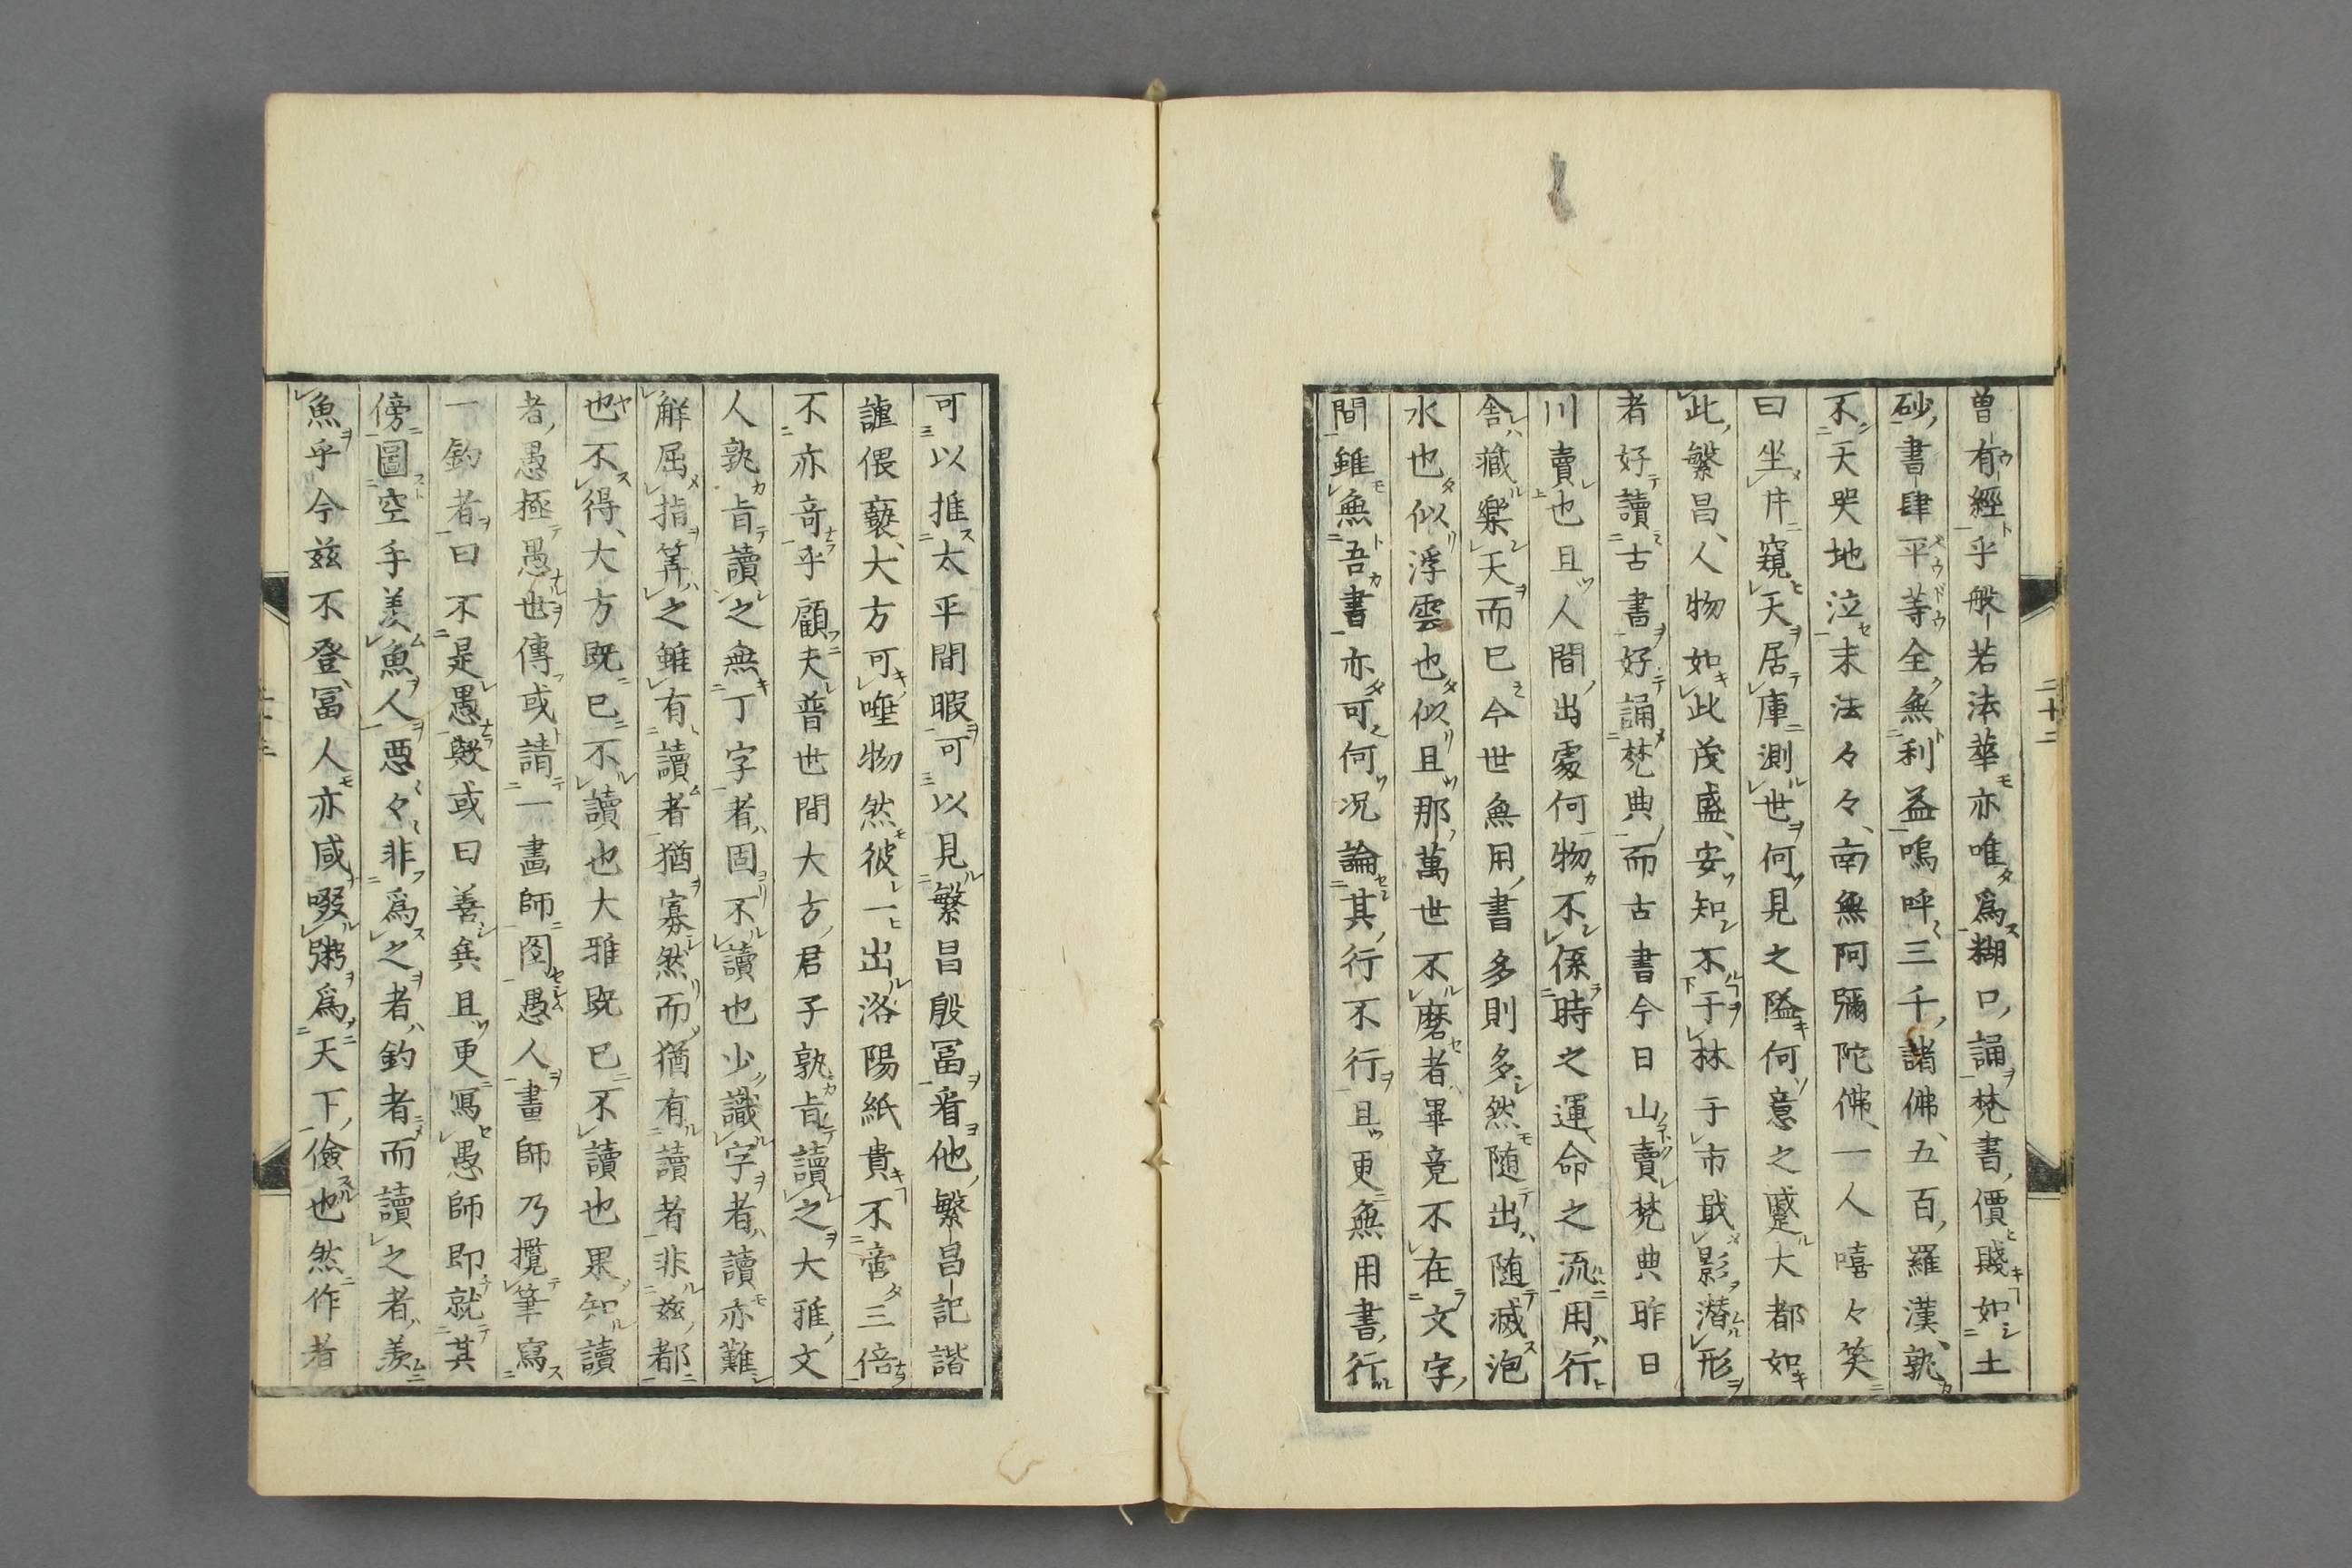 曽有經乎般若法華亦唯爲糊口誦梵書價賤如土
砂書肆平等全無利益嗚呼三千諸佛五百羅漢孰
不天哭地泣末法々々南無阿彌陀佛一人嘻々笑
曰坐井窺天居庫測世何見之隘何意之蹙大都如
此繁昌人物如此茂盛安知不于林于市戢影潜形
者好讀古書好誦梵典而古書今日山賣梵典昨日
川賣也且人間出處何物不係時之運命之流用行
舎藏樂天而已今世無用書多則多然随出随滅泡
水也似浮雲也似且那萬世不磨者畢竟不在文字
間雖無吾書亦可何况論其行不行且更無用書行
二十二
可以推太平間暇可以見繁昌殷冨看他繁昌記諧
謔偎褻大方可唾物然彼一出洛陽紙貴不啻三倍
不亦奇乎顧夫普世間大方君子孰肯讀之大雅文
人孰肯讀之無丁字者固不讀也少識字者讀亦難
解屈指筭之雖有讀者猶寡然而猶有讀者非玆都
也不得大方既已不讀也大雅既已不讀也果知讀
者愚極愚也傳或請一畵師圖愚人畫師乃攬筆寫
一釣者曰不是愚歟或曰善矣且更寫愚師即就其
傍圖空手羡魚人悪々非爲之者釣者而讀之者羨
魚乎今兹不登冨人亦咸啜粥爲天下儉也然作者